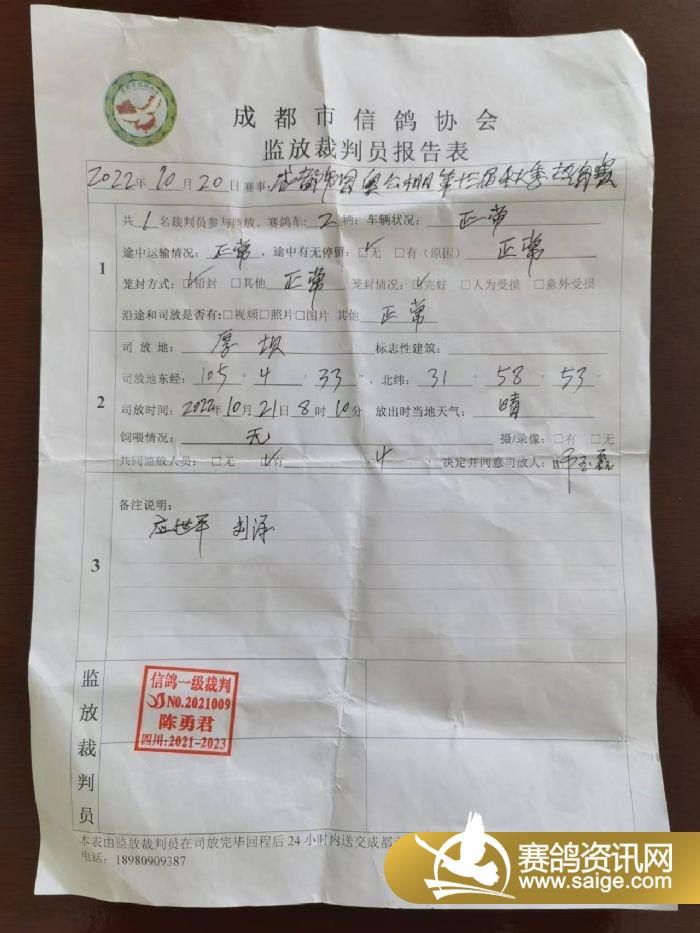 成都市信鸽协会
监放裁判员报告表
2022年10月20日赛事：成都
共1名裁判员参与监放、赛鸽车：2辆；车辆状况：正常
途中运输情况：正常，途中有无停留：☑无 □有（原因）正常
1
笼封方式：☑铅封 □其他 正常 笼封情况：☑完好 □人为受损 □意外受损
沿途和司放是否有：□视频□照片□图片 其他 正常
司放地：厚坝 标志性建筑：
司放地东经：105°4′33″，北纬：31°58′53″
2
司放时间：2022年10月21日8时10分 放出时当地天气：晴
饲喂情况：无 摄/录像：□有 □无
共同监放人员：□无 ☑有 4 决定并同意司放人：
备注说明：
应世军
3
监放裁判员
信鸽一级裁判
NO.2021009
陈勇君
四川:2021-2023
本表由监放裁判员在司放完毕回程后24小时内送交成都
电话：18980909387
赛鸽资讯网
www.saige.com